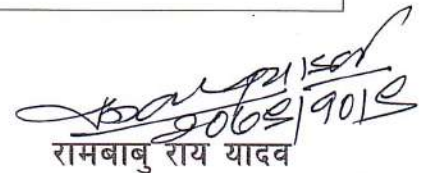 २०७९।१०।९
रामबाबु राय यादव